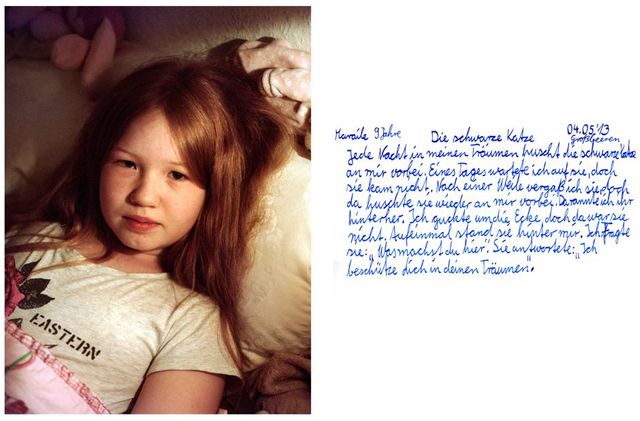 EASTERN
Maraile 9 Jahre Die schwarze Katze 04.05.'13
Großbeeren
Jede Nacht in meinen Träumen huscht die schwarze Katze
an mir vorbei. Eines Tages wartete ich auf sie, doch
sie kam nicht. Nach einer Weile vergaß ich sie, doch
da huschte sie wieder an mir vorbei. Da rannte ich ihr
hinterher. Ich guckte um die Ecke, doch da war sie
nicht. Aufeinmal stand sie hinter mir. Ich fragte
sie: „Was machst du hier". Sie antwortete: „Ich
beschütze dich in deinen Träumen".